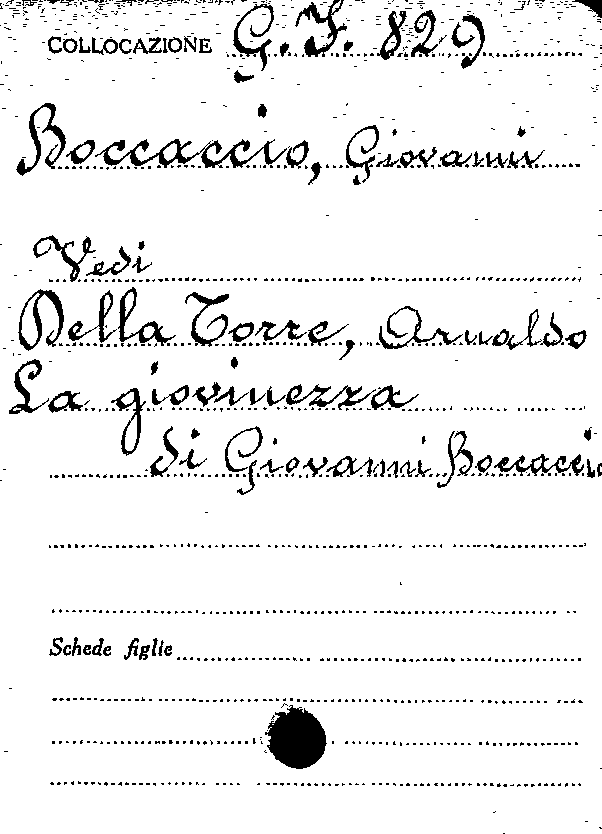 COLLOCAZIONE G. F. 829
Boccaccio, Giovanni
Vedi
Della Torre, Arnaldo
La giovinezza
di Giovanni Boccaccio
Schede figlie